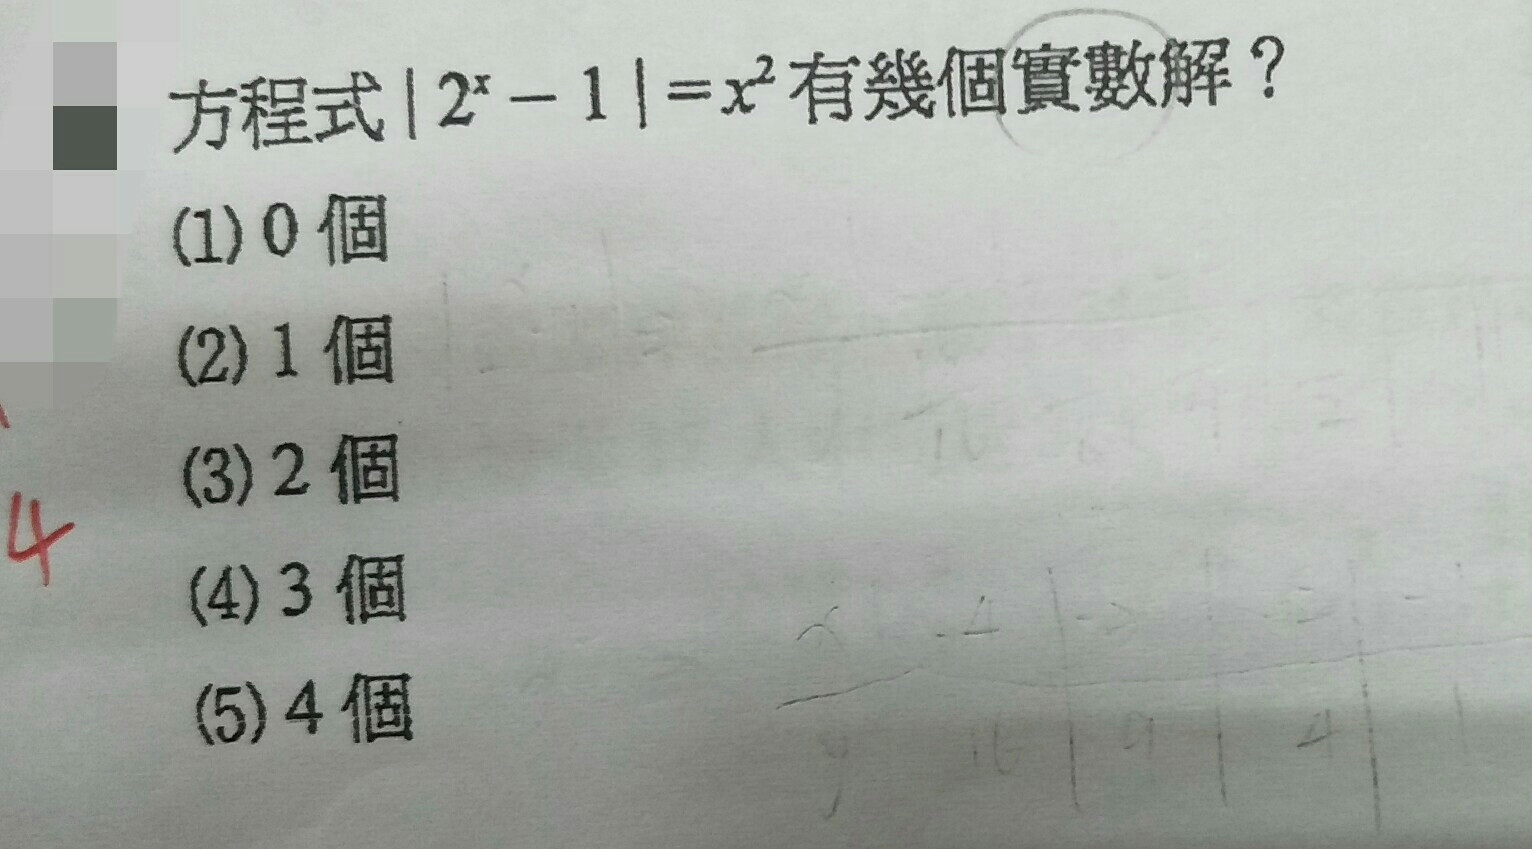 方程式| 2ˣ − 1 |=x²有幾個實數解?
(1) 0 個
(2) 1 個
(3) 2 個
4
(4) 3 個
(5) 4 個